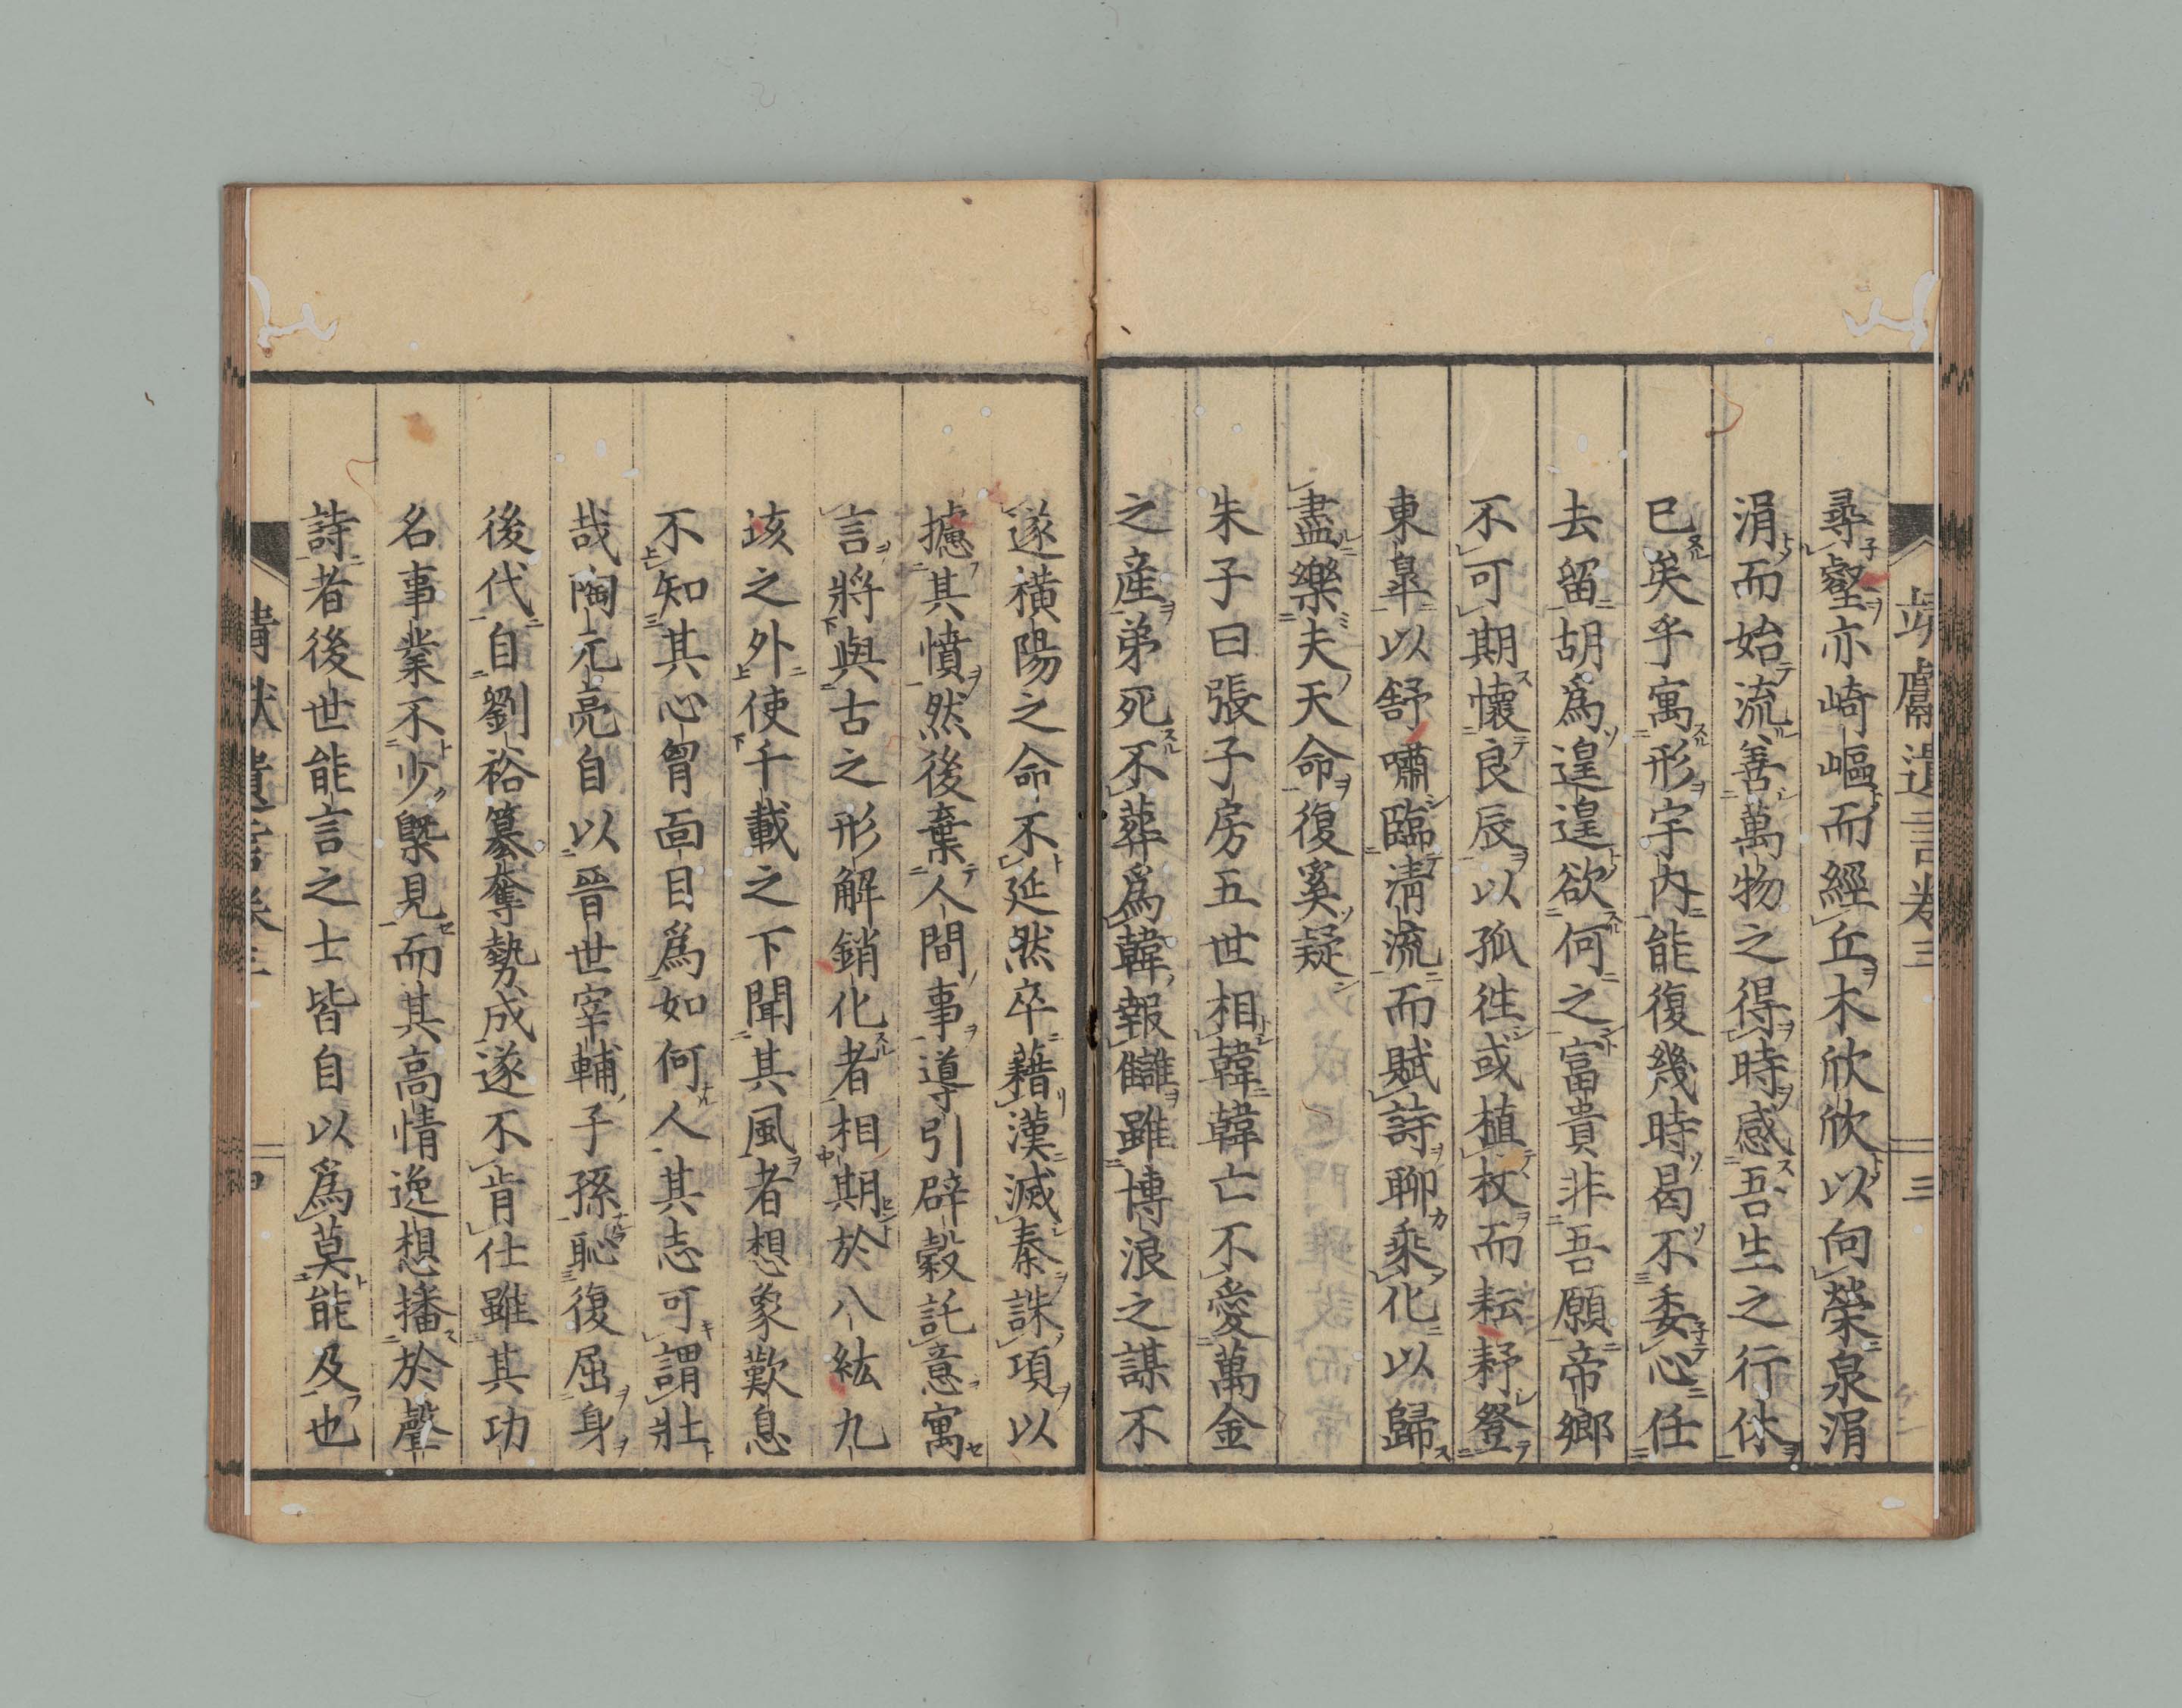 靖獻遺言卷三
三
尋壑亦崎嶇而經丘木欣欣以向榮泉涓
涓而始流善萬物之得時感吾生之行休
已矣乎寓形宇内能復幾時曷不委心任
去留胡爲遑遑欲何之富貴非吾願帝鄉
不可期懷良辰以孤徃或植杖而耘耔登
東皐以舒嘯臨淸流而賦詩聊乘化以歸
盡樂夫天命復奚疑
朱子曰張子房五世相韓韓亡不愛萬金
之產弟死不葬爲韓報讎雖博浪之謀不
遂橫陽之命不延然卒藉漢滅秦誅項以
攄其憤然後棄人間事導引辟穀託意寓
言將與古之形解銷化者相期於八紘九
垓之外使千載之下聞其風者想象歎息
不知其心胷靣目爲如何人其志可謂壯
哉陶元亮自以晉世宰輔子孫恥復屈身
後代自劉裕簒奪勢成遂不肯仕雖其功
名事業不少槩見而其高情逸想播於聲
詩者後世能言之士皆自以爲莫能及也
靖獻遺言卷三
四